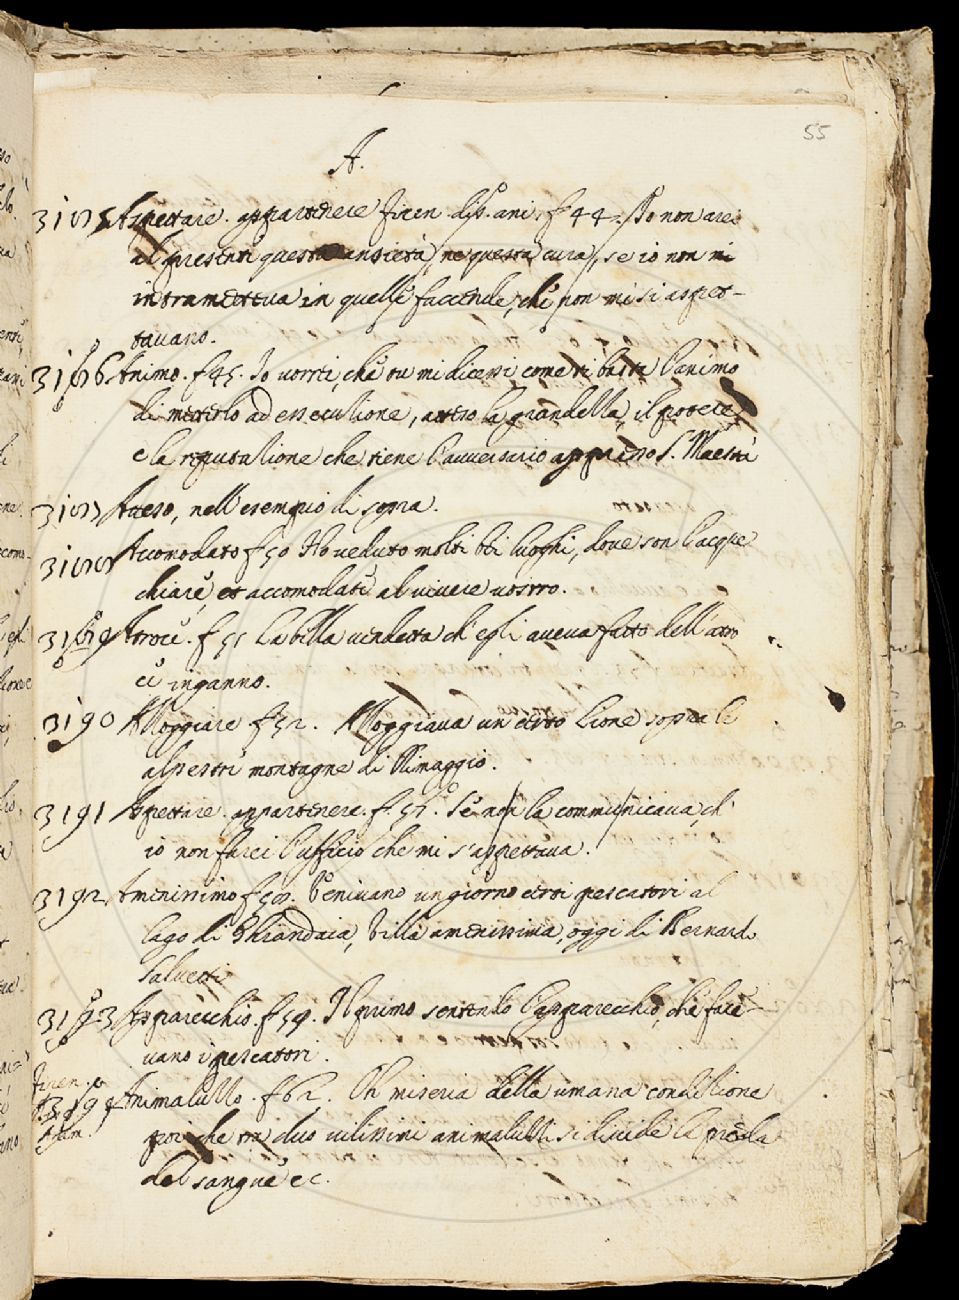 55
A.
3185 Aspettare. appartenere Firen. disp. ani. f 44. Io non arei
al presente questa ansietà, ne questa cura, se io non mi
intrametteva in quelle faccende, che non mi si aspet-
tavano.
3186 Animo. f 45. Io vorrei, che tu mi dicessi come ti basta l'animo
di meterlo ad essecuzione, atteso la grandezza, il potere
e la riputazione che tiene l'avversario appresso S. Maestà
3187 Atteso, nell'esempio di sopra.
3188 Accomodato f 50 Ho veduto molti bei luoghi, dove son l'acque
chiare, et accomodate al vivere vostro.
3189 Atroce. f 51 La bella vendetta ch'egli aveva fatto dell'atro
ce inganno.
3190 Alloggiare f 52. Alloggiava un certo Lione sopra le
alpestri montagne di
3191 Aspettare. appartenere. f. 55. Se non la communicava, ch'
io non farei l'ufficio che mi s'aspettava.
3192 Amenissimo f 58. Venivano un giorno certi pescatori al
lago di Ghiandaia, Villa amenissima, oggi di Bernardo
Salvetti
3193 Apparecchio. f 59. Il primo sentendo l'apparecchio, che face-
vano i pescatori.
Firen.
3194 Animaluzzo. f 62. Oh miseria della umana condizione
Anim.
poi che tra duo vilissimi animaluzzi si divide la preda
del sangue ec.